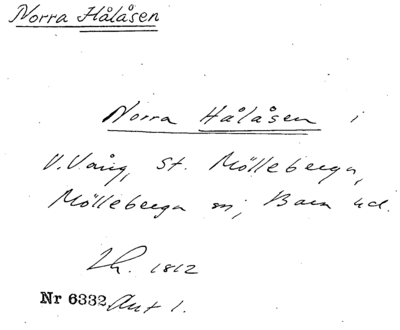 Norra Hålåsen
Norra Hålåsen i
V. Vång, St. Mölleberga,
Mölleberga sn; Bara hd.
Lh. 1812
Nr 6332 Akt 1.